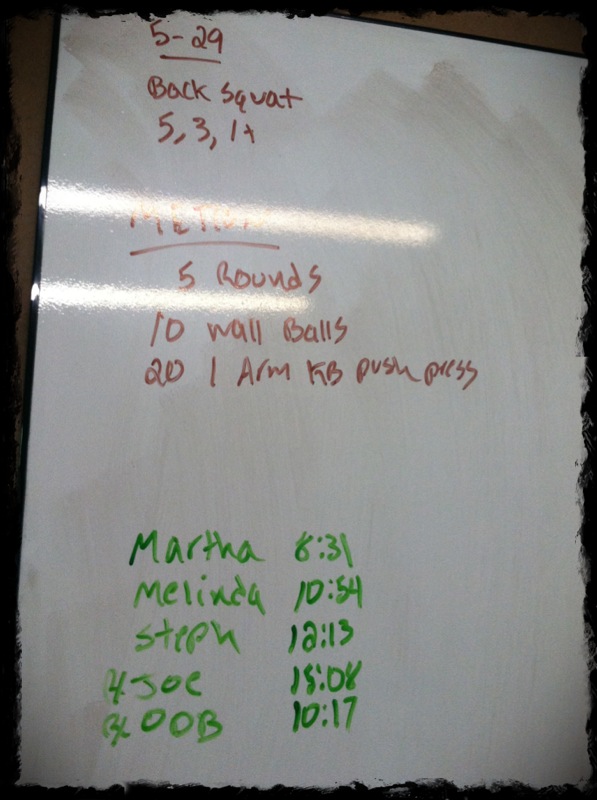 5-29
Back Squat
5, 3, 1+
METCON
5 Rounds
10 Wall Balls
20 1 Arm KB push press
Martha 8:31
Melinda 10:54
Steph 12:13
Rx Joe
Rx OOB 10:17